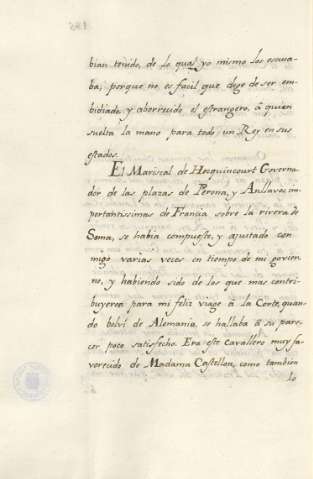 bian tenido, de lo qual yo mismo los escusa-
ba, porque no es facil que dege de ser em-
bidiado, y aborrecido el estrangero, â quien
suelta la mano para todo, un Rey en sus
estados.
El Mariscal de Hoquincourt Governa-
dor de las plazas de Perona, y Anllaves im-
pertantissimas de Francia sobre la rivera de
Soma, se habia compuesto, y ajustado con-
migo varias veces en tiempo de mi govier-
no, y habiendo sido de los que mas contri-
buyeron para mi feliz viage â la Corte, quan-
do bolvi de Alemania, se hallaba â su pare-
cer poco satisfecho. Era este cavallero muy fa-
vorecido de Madama Castellon, como tambien
lo